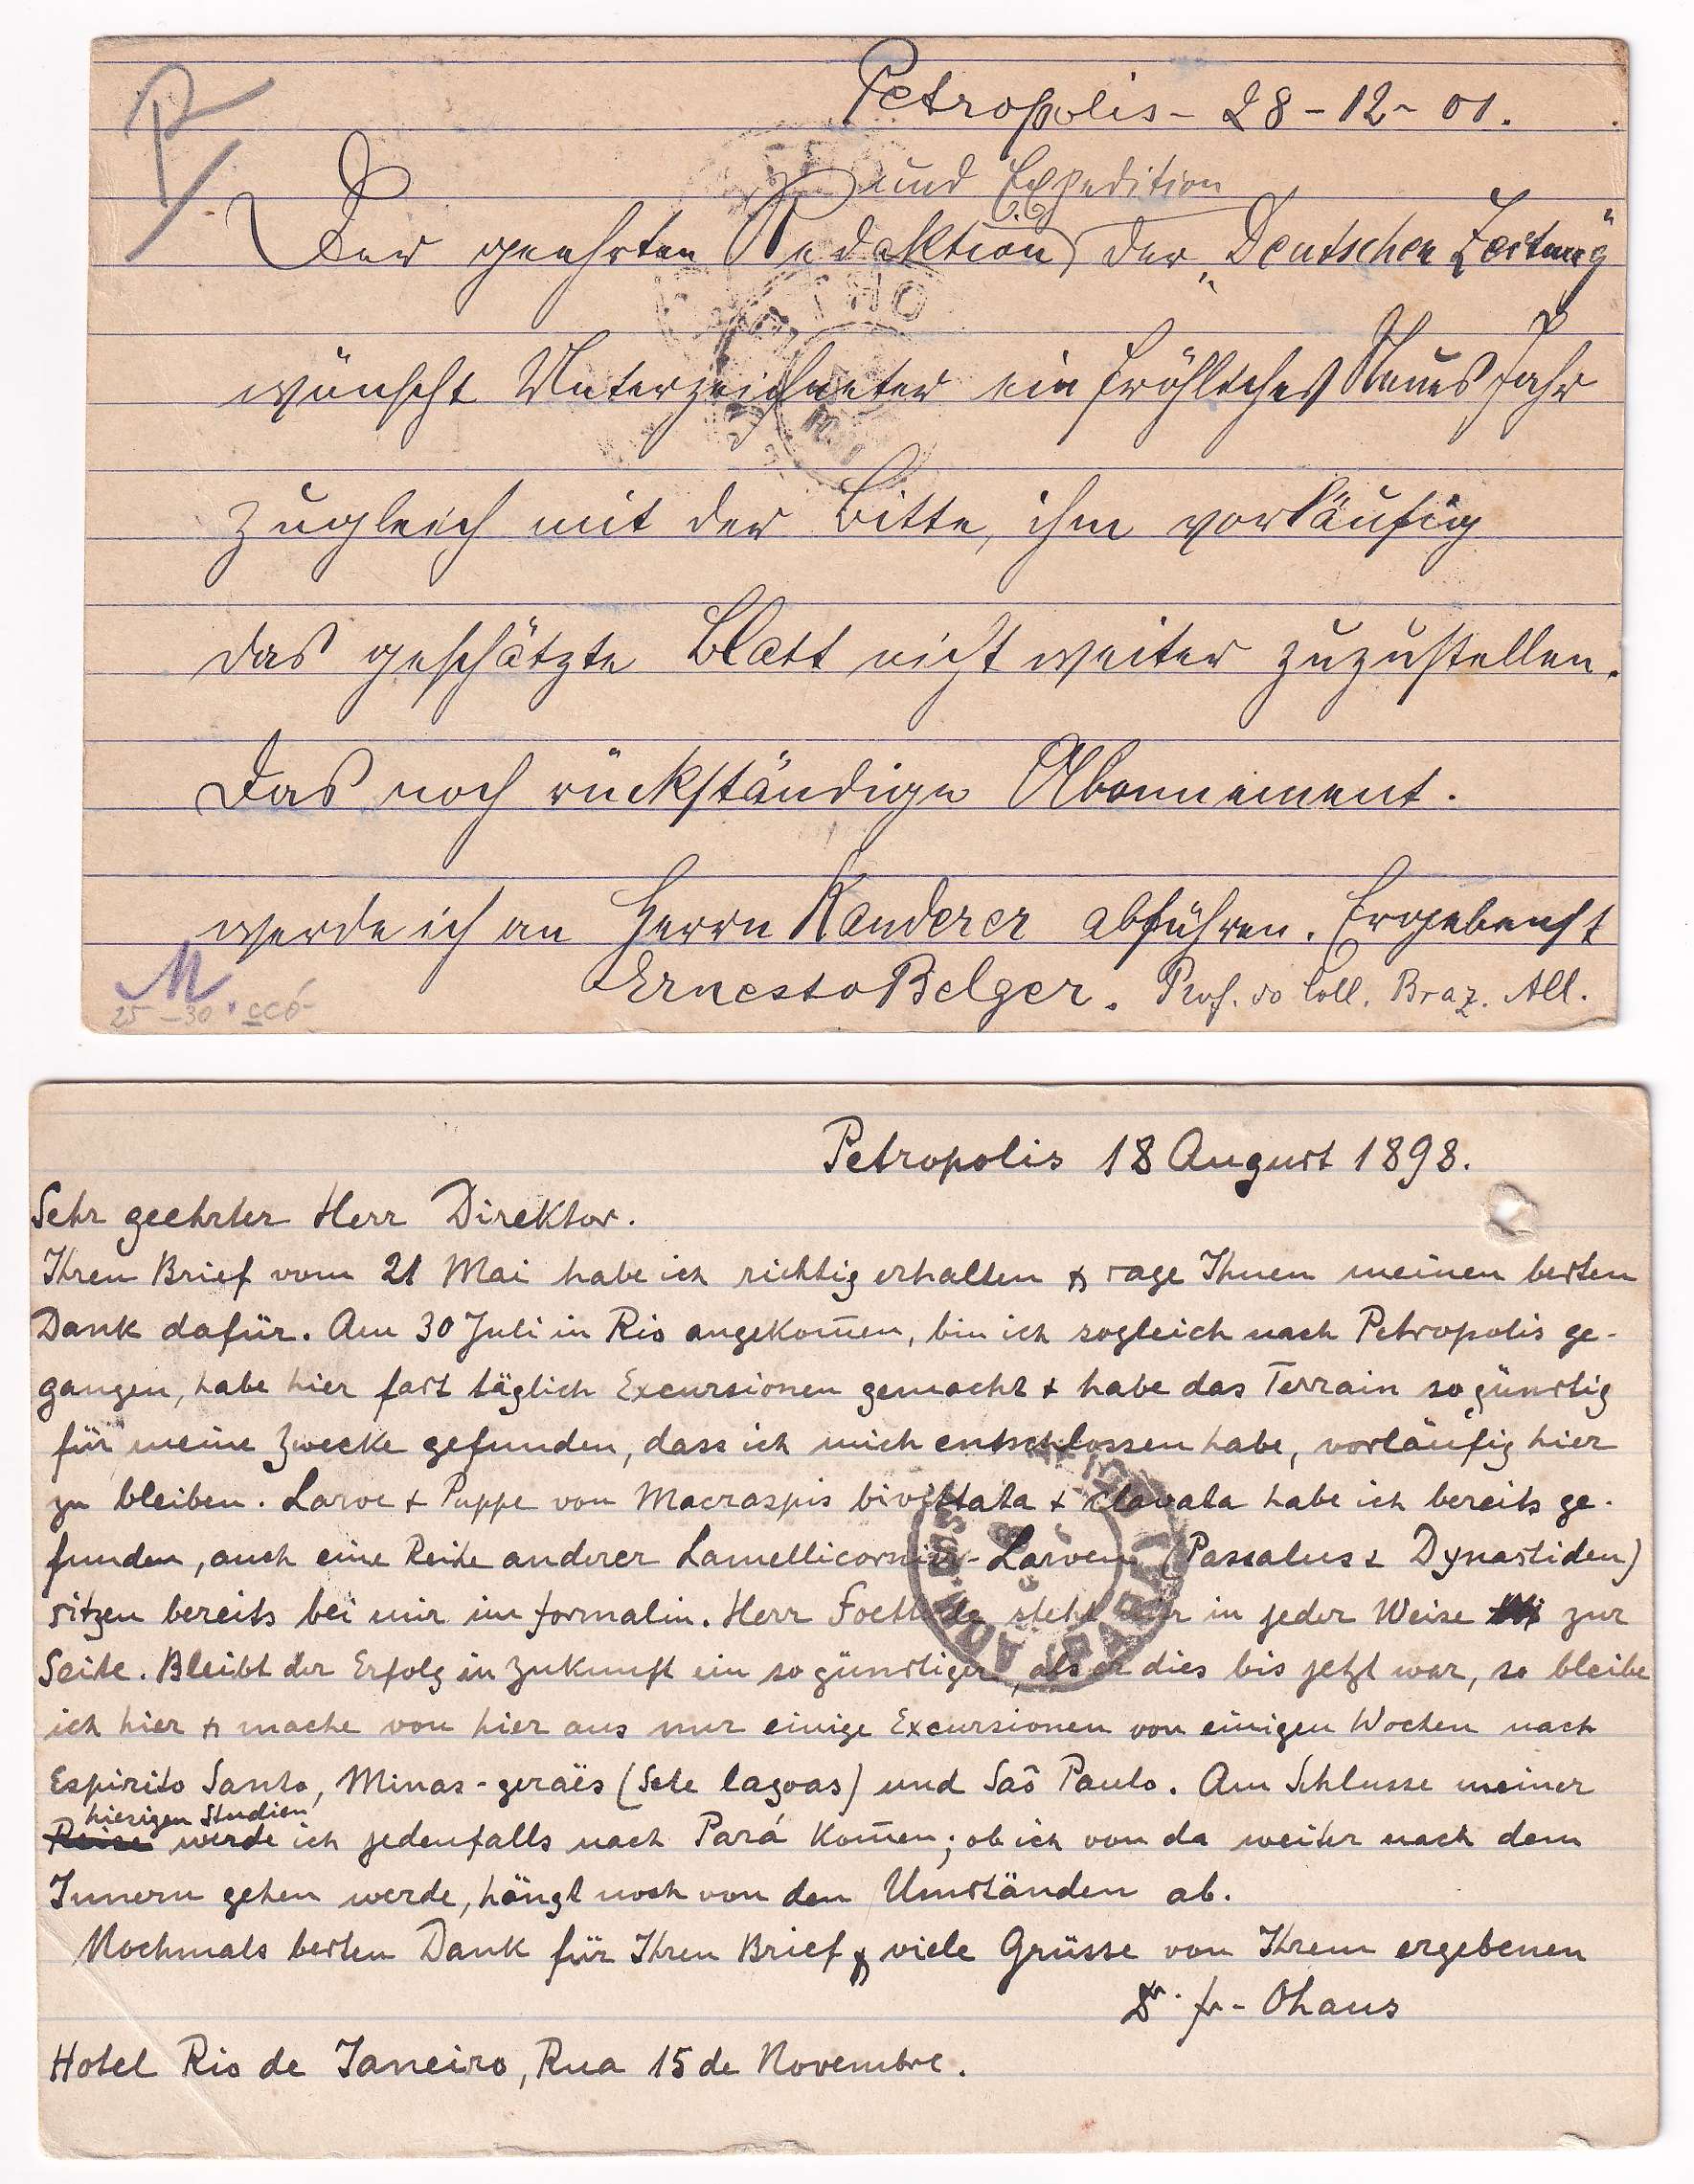 Petropolis - 28 - 12 - 01.
und Expedition
Der geehrten Redaktion der „Deutschen Zeitung"
wünscht Unterzeichneter ein fröhliches Neues Jahr
zugleich mit der Bitte, ihm vorläufig
das geschätzte Blatt nicht weiter zuzustellen.
Das noch rückständige Abonnement.
werde ich an Herrn Kanderer abführen. Ergebenst
Ernesto Belger. Prof. do Coll. Braz. All.
25 - 30
Petropolis 18 August 1898.
Sehr geehrter Herr Direktor.
Ihren Brief vom 21 Mai habe ich richtig erhalten & sage Ihnen meinen besten
Dank dafür. Am 30 Juli in Rio angekom̄en, bin ich sogleich nach Petropolis ge-
gangen, habe hier fast täglich Excursionen gemacht + habe das Terrain so günstig
für meine Zwecke gefunden, dass ich mich entschlossen habe, vorläufig hier
zu bleiben. Larve + Puppe von Macraspis bivittata + clavata habe ich bereits ge-
funden, auch eine Reihe anderer Lamellicornier-Larven (Passalus & Dynastiden)
sitzen bereits bei mir im formalin. Herr Foetterle steht mir in jeder Weise zur
Seite. Bleibt der Erfolg in Zukunft ein so günstiger, als er dies bis jetzt war, so bleibe
ich hier & mache von hier aus nur einige Excursionen von einigen Wochen nach
Espirito Santo, Minas-geraës (Sete lagoas) und Saõ Paulo. Am Schlusse meiner
hierigen Studien
Reise werde ich jedenfalls nach Pará kom̄en; ob ich von da weiter nach dem
Innern gehen werde, hängt noch von den Umständen ab.
Nochmals besten Dank für Ihren Brief & viele Grüsse von Ihrem ergebenen
Dr. fr - Ohaus
Hotel Rio de Janeiro, Rua 15 de Novembre.